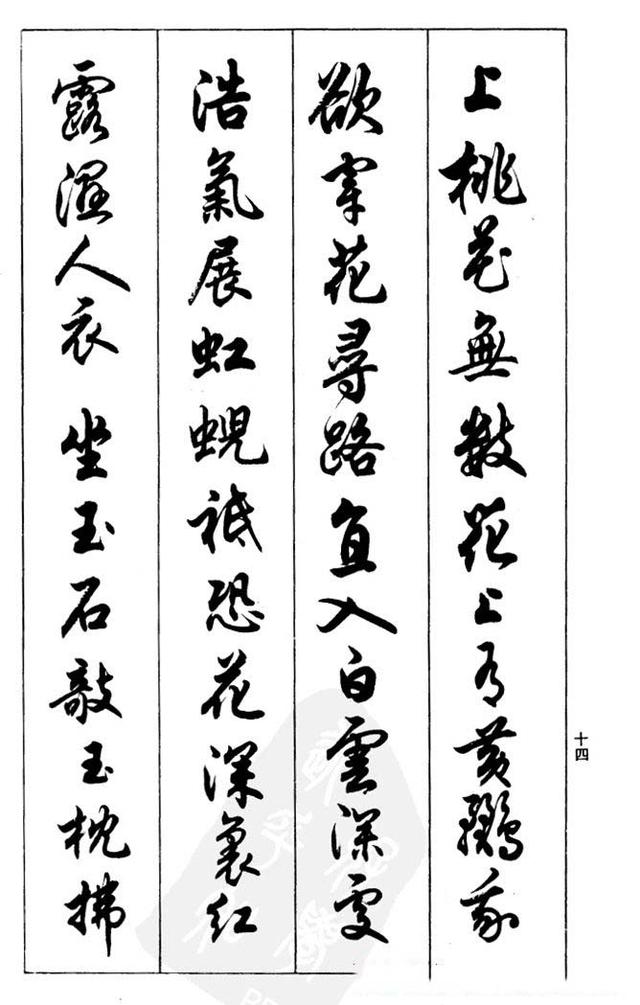 上桃花無數花上有黄鸝我
欲穿花尋路直入白雲深處
浩氣展虹蜺祗恐花深裏紅
露濕人衣 坐玉石敲玉枕拂
十四